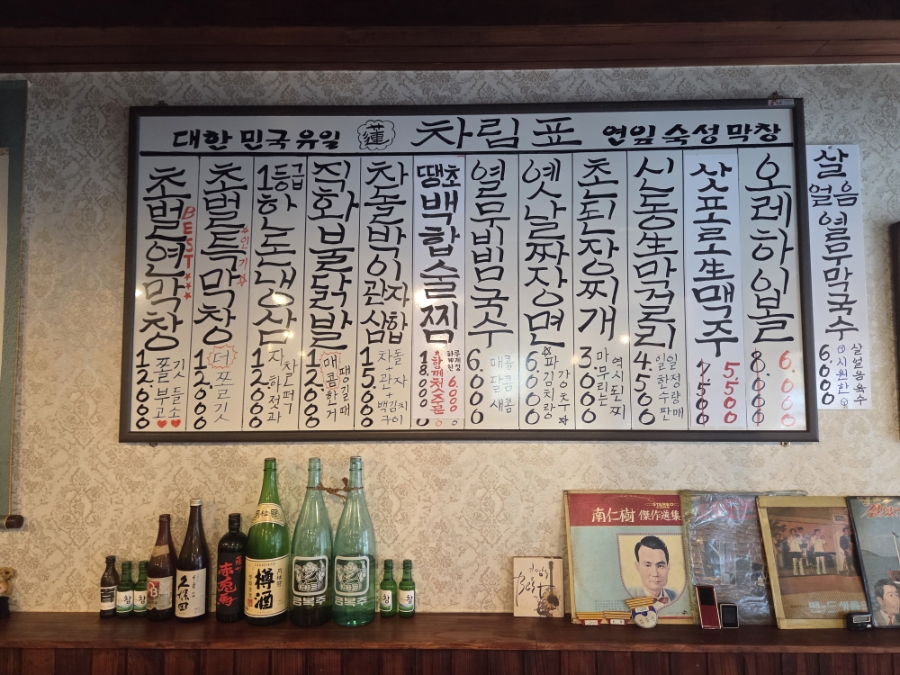 대한민국유일 蓮 차림표 연잎숙성막창
초벌연막창
BEST
쫄깃
부들
고소
12,000
초벌특막창
인기
더
쪼르깃
12,000
1등급한돈냉삼
자차
하돈
젓떡
과
12,000
직화불닭발
매콤한거
땡길때
12,000
차돌박이관자삼합
차돌
+관자
+
백김치
구이
땡초백합술찜
함께첫주문
6,000
18,000
열무비빔국수
매콤
달콤
새콤
6,000
옛날짜장면
파김치랑
강추
6,000
초된장찌개
마무리는
역시된찌
3,000
신동生막걸리
일일한수판
일정량매
4,500
삿포로生맥주
5,500
7,500
오레하이볼
6,000
8,000
살얼음열무막국수
살얼음육수
시원한
6,000
久保田
赤兎馬
樽酒
경복주
경복주
참
참
南仁樹 傑作選集
STEREO